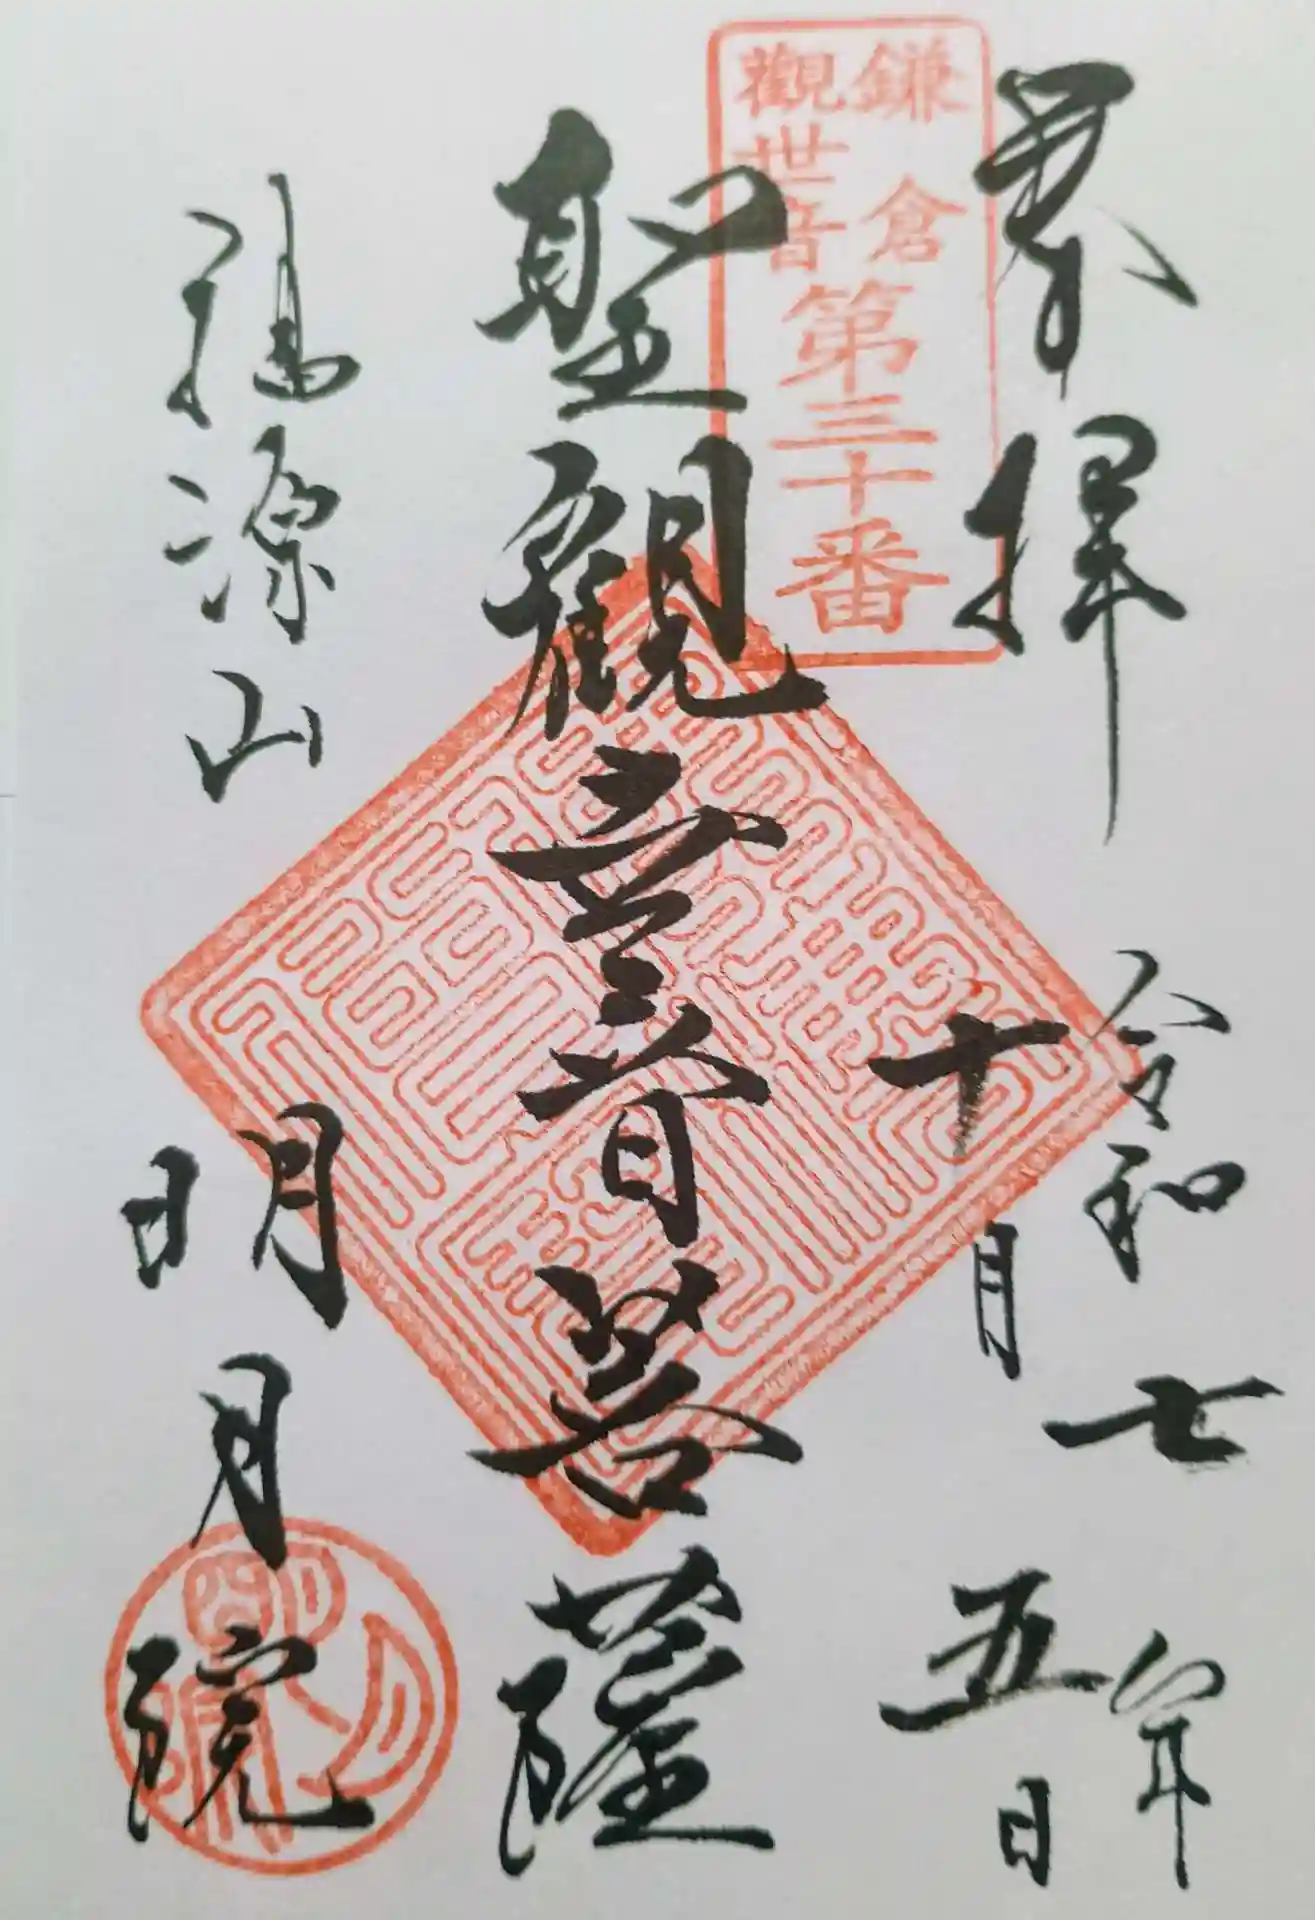 奉拝
令和七年
十月五日
鎌倉
觀世音
第三十番
聖觀世音菩薩
福源山
明月院